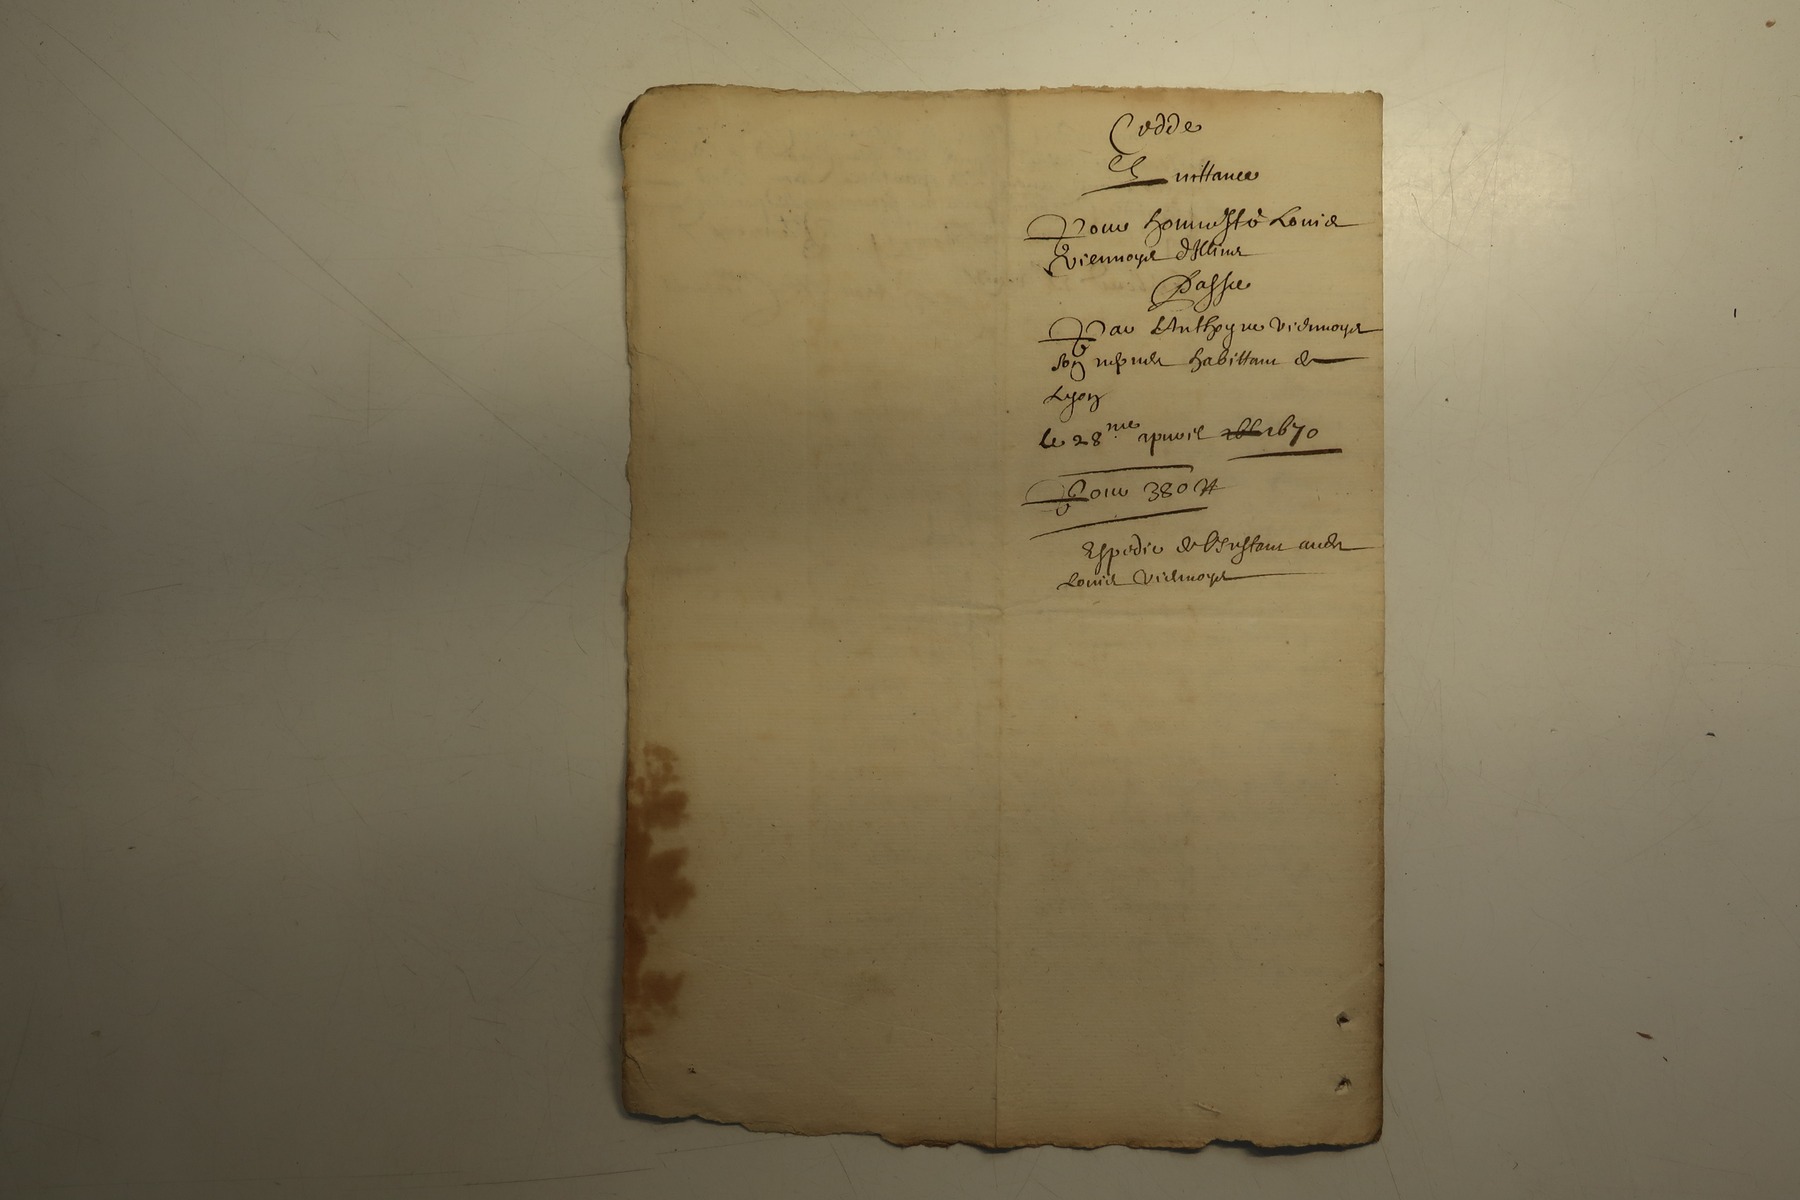 Cedde
Quittance
Pour honneste Louis
Viennoys d'Illins
Passée
Par Anthoyne Viennoys
son nepveu habittant de
Lyon
le 28me apvril 1670
Pour 380 ₶
Expedié de l'instant audit
Louis Viennoys